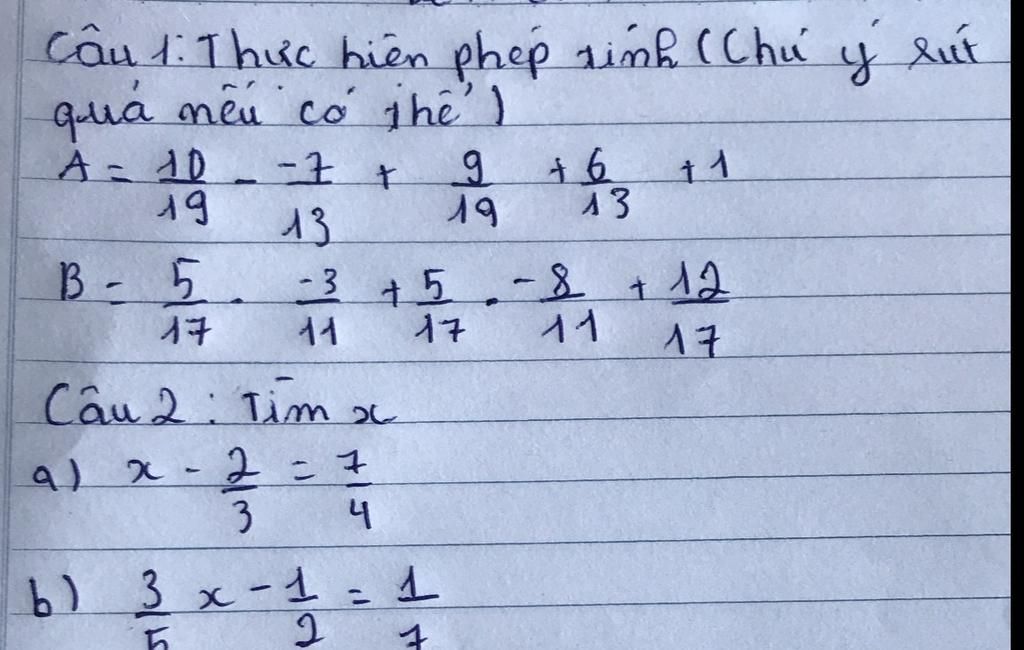 Câu 1: Thực hiện phép tính (Chú ý rút
quả nếu có thể)
A = 10/19 - -7/13 + 9/19 + 6/13 + 1
B = 5/17 . -3/11 + 5/17 . -8/11 + 12/17
Câu 2 : Tìm x
a) x - 2/3 = 7/4
b) 3/5 x - 1/2 = 1/7